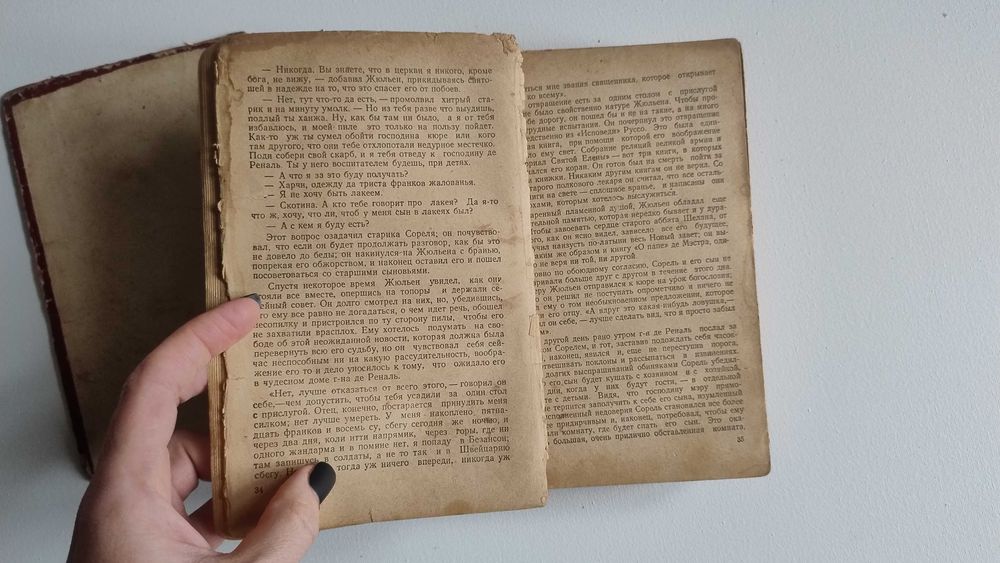 — Никогда. Вы знаете, что в церкви я никого, кроме
бога, не вижу, — добавил Жюльен, прикидываясь свято-
шей в надежде на то, что это спасет его от побоев.
— Нет, тут что-то да есть, — промолвил хитрый ста-
рик и на минуту умолк. — Но из тебя разве что выудишь,
подлый ты ханжа. Ну, как бы там ни было, а я от тебя
избавлюсь, и моей пиле это только на пользу пойдет.
Как-то уж ты сумел обойти господина кюре или кого
там другого, что они тебе отхлопотали недурное местечко.
Поди собери свой скарб, и я тебя отведу к господину де
Реналь. Ты у него воспитателем будешь, при детях.
— А что я за это буду получать?
— Харчи, одежду да триста франков жалованья.
— Я не хочу быть лакеем.
— Скотина. А кто тебе говорит про лакея? Да я-то
что ж, хочу, что ли, чтоб у меня сын в лакеях был?
— А с кем я буду есть?
Этот вопрос озадачил старика Сореля; он почувство-
вал, что если он будет продолжать разговор, как бы это
не довело до беды; он накинулся на Жюльена с бранью,
попрекая его обжорством, и наконец оставил его и пошел
посоветоваться со старшими сыновьями.
Спустя некоторое время Жюльен увидел, как они
стояли все вместе, опершись на топоры и держали се-
мейный совет. Он долго смотрел на них, но, убедившись,
что ему все равно не догадаться, о чем идет речь, обошел
лесопилку и пристроился по ту сторону пилы, чтобы его
не захватили врасплох. Ему хотелось подумать на сво-
боде об этой неожиданной новости, которая должна была
перевернуть всю его судьбу, но он чувствовал себя сей-
час неспособным ни на какую рассудительность, вообра-
жение его то и дело уносилось к тому, что ожидало его
в чудесном доме г-на де Реналь.
«Нет, лучше отказаться от всего этого, — говорил он
себе, — чем допустить, чтобы тебя усадили за один стол
с прислугой. Отец, конечно, постарается принудить меня
силком; нет лучше умереть. У меня накоплено пятна-
дцать франков и восемь су, сбегу сегодня же ночью, и
через два дня, коли итти напрямик, через горы, где ни
одного жандарма и в помине нет, я попаду в Безансон;
там запишусь в солдаты, а не то так и в Швейцарию
сбегу. тогда уж ничего впереди, никогда уж
34
мне звания священника, которое открывает
ко всему».
отвращение есть за одним столом с прислугой
не было свойственно натуре Жюльена. Чтобы про-
бе дорогу, он пошел бы и не на такие, а на много
трудные испытания. Он почерпнул это отвращение
ственно из «Исповеди» Руссо. Это была един-
книга, при помощи которой его воображение
ло ему свет. Собрание реляций великой армии и
ориал Святой Елены» — вот три книги, в которых
чался его коран. Он готов был на смерть пойти за
книжки. Никаким другим книгам он не верил. Со
старого полкового лекаря он считал, что все осталь-
ниги на свете — сплошное вранье, и написаны они
охами, которым хотелось выслужиться.
аренный пламенной душой, Жюльен обладал еще
тельной памятью, которая нередко бывает и у дура-
Чтобы завоевать сердце старого аббата Шелана, от
ого, как он ясно видел, зависело все его будущее,
учил наизусть по-латыни весь Новый завет; он вы-
таким же образом и книгу «О папе» де Мэстра, оди-
о не веря ни той, ни другой.
овно по обоюдному согласию, Сорель и его сын не
аривали больше друг с другом в течение этого дня.
еру Жюльен отправился к кюре на урок богословия;
о он решил не поступать опрометчиво и ничего не
ему о том необыкновенном предложении, которое
и его отцу. «А вдруг это какая-нибудь ловушка, —
л он себе, — лучше сделать вид, что я просто забыл
м».
другой день рано утром г-н де Реналь послал за
ом Сорелем, и тот, заставив подождать себя часок-
наконец, явился и, еще не переступив порога,
твешивать поклоны и рассыпаться в извинениях.
долгих выспрашиваний обиняками Сорель убедил-
его сын будет кушать с хозяином и с хозяйкой,
дни, когда у них будут гости, — в отдельной
е с детьми. Видя, что господину мэру прямо-
е терпится заполучить к себе его сына, изумленный
исполненный недоверия Сорель становился все более
е придирчивым и, наконец, потребовал, чтобы ему
али комнату, где будет спать его сын. Это ока-
большая, очень прилично обставленная комната,
35